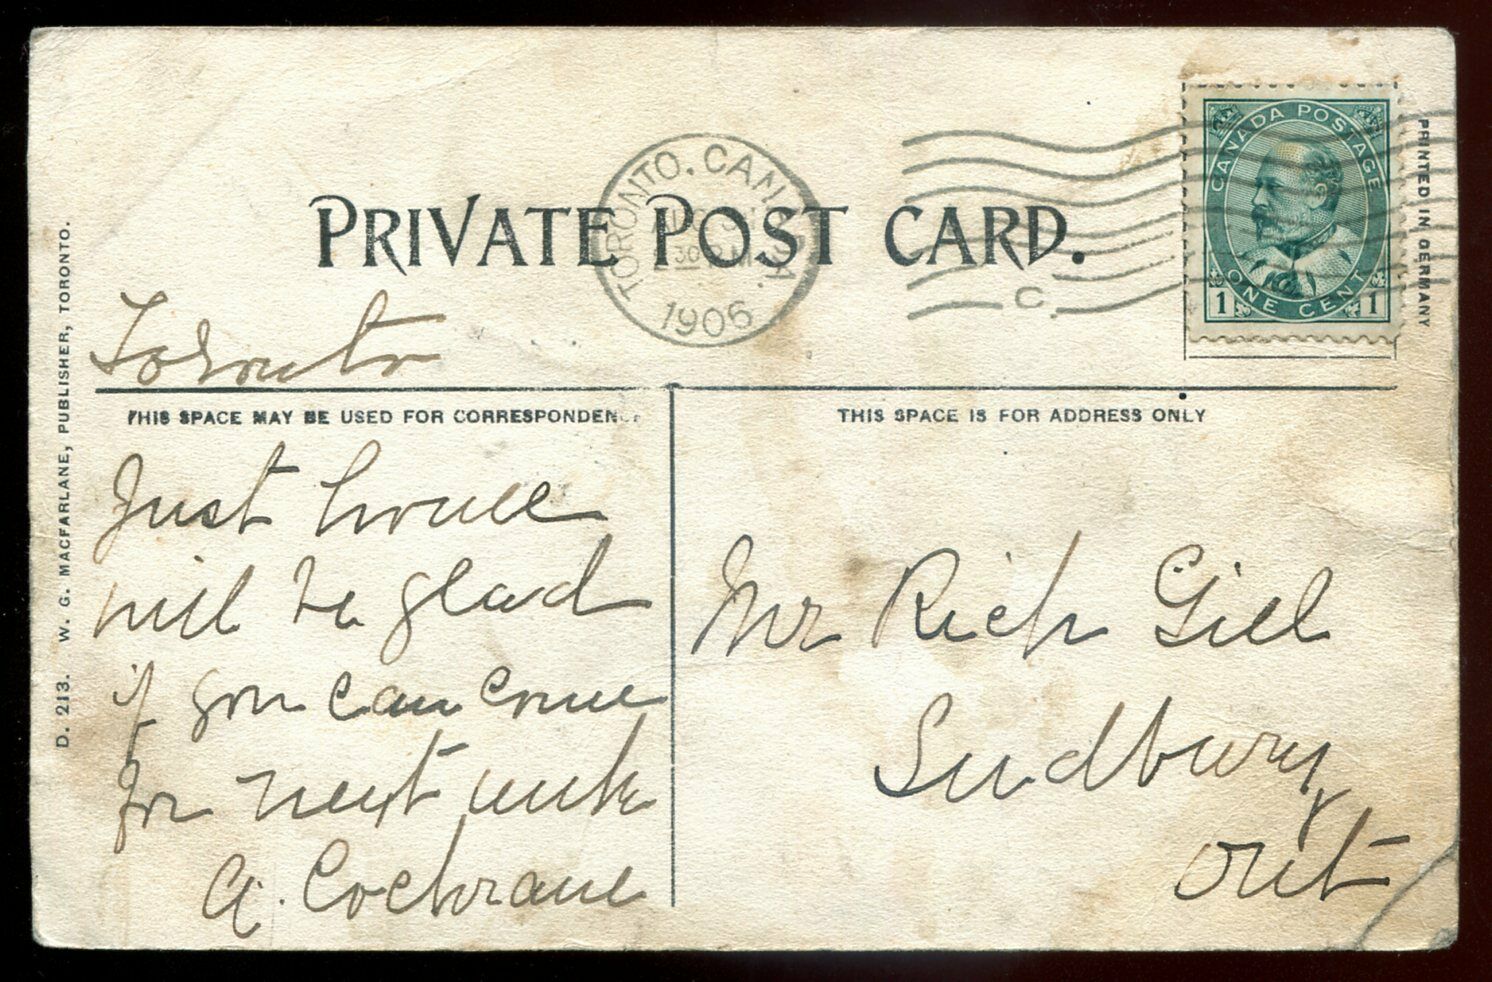 PRIVATE POST CARD.
TORONTO. CANADA.
30 PM
1906
C
CANADA POSTAGE
ONE CENT
1 1
PRINTED IN GERMANY
D. 213. W. G. MACFARLANE, PUBLISHER, TORONTO.
Toronto
THIS SPACE MAY BE USED FOR CORRESPONDENCE
THIS SPACE IS FOR ADDRESS ONLY
Just
will be glad
if you can come
for next week
A. Cochrane
Mr Rich Gill
Sudbury
Ont